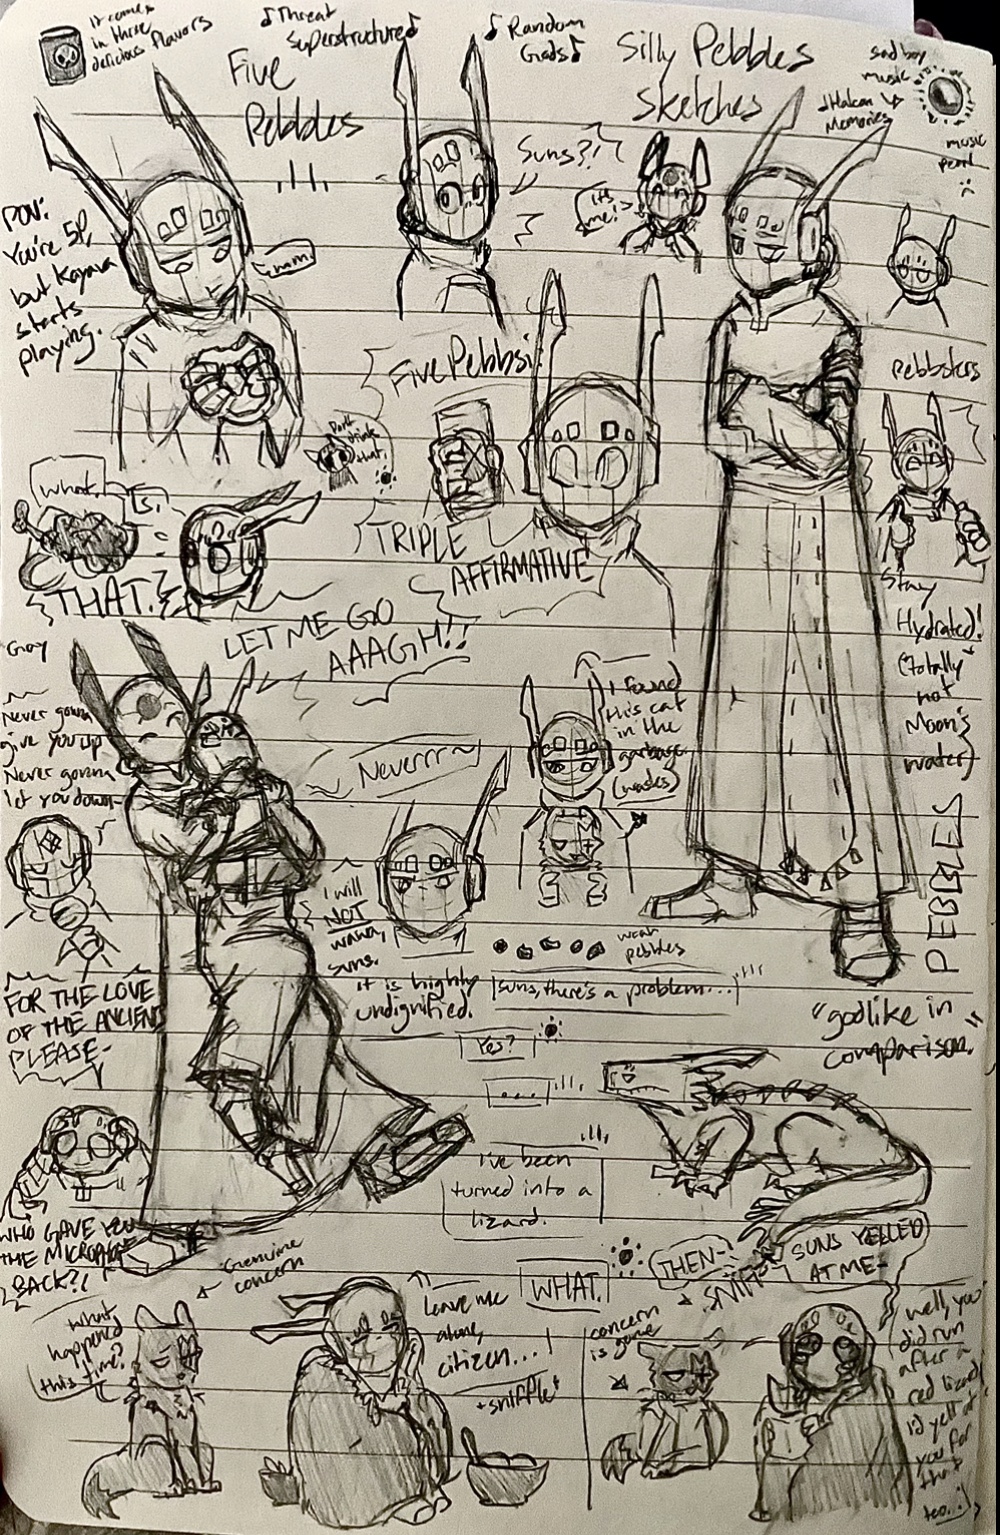 it comes
in three
delicious flavors
♪Threat
Superstructure♪
♪Random
Gods♪
Five
Pebbles
Silly Pebbles
Sketches
sad boy
music
♪Halcyon
Memories
music
pearl
:(
Suns?!
its
me!
POV:
You're 5P,
but Kayava
starts
playing.
nom
Five Pebbsi
Pebbsters
Dont
drink
that.
What.
Is.
THAT.
TRIPLE
AFFIRMATIVE
Stay
Hydrated!
(totally
not
Moon's
water)
LET ME GO
AAAGH!!
Gay
Never gonna
give you up
Never gonna
let you down~
Neverrrr~
I found
this cat
in the
garbage
(wastes)
I will
NOT
wawa,
suns.
it is highly
undignified.
woah
pebbles
PEBBLES
"godlike in
comparison."
FOR THE LOVE
OF THE ANCIENTS
PLEASE-
Suns, there's a problem...
Yes?
...
I've been
turned into a
lizard.
WHAT.
WHO GAVE YOU
THE MICROPHONE
BACK?!
Genuine
concern
What
happened
this time?
Leave me
alone,
citizen...
*sniffle*
concern
is gone
THEN-
*SNIFF*
SUNS YELLED
AT ME-
well, you
did run
after a
red lizard
I'd yell at
you for
that
too.